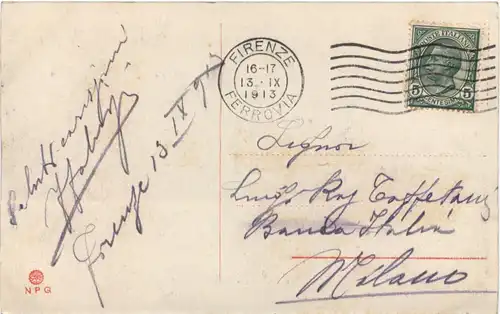 Saluti carissimi
Firenze 13 IX 913
FIRENZE
16-17
13. IX
1913
FERROVIA
POSTE ITALIANE
5 5
CENTESIMI
Signor
Luigi Rag
Banca Italia
Milano
NPG